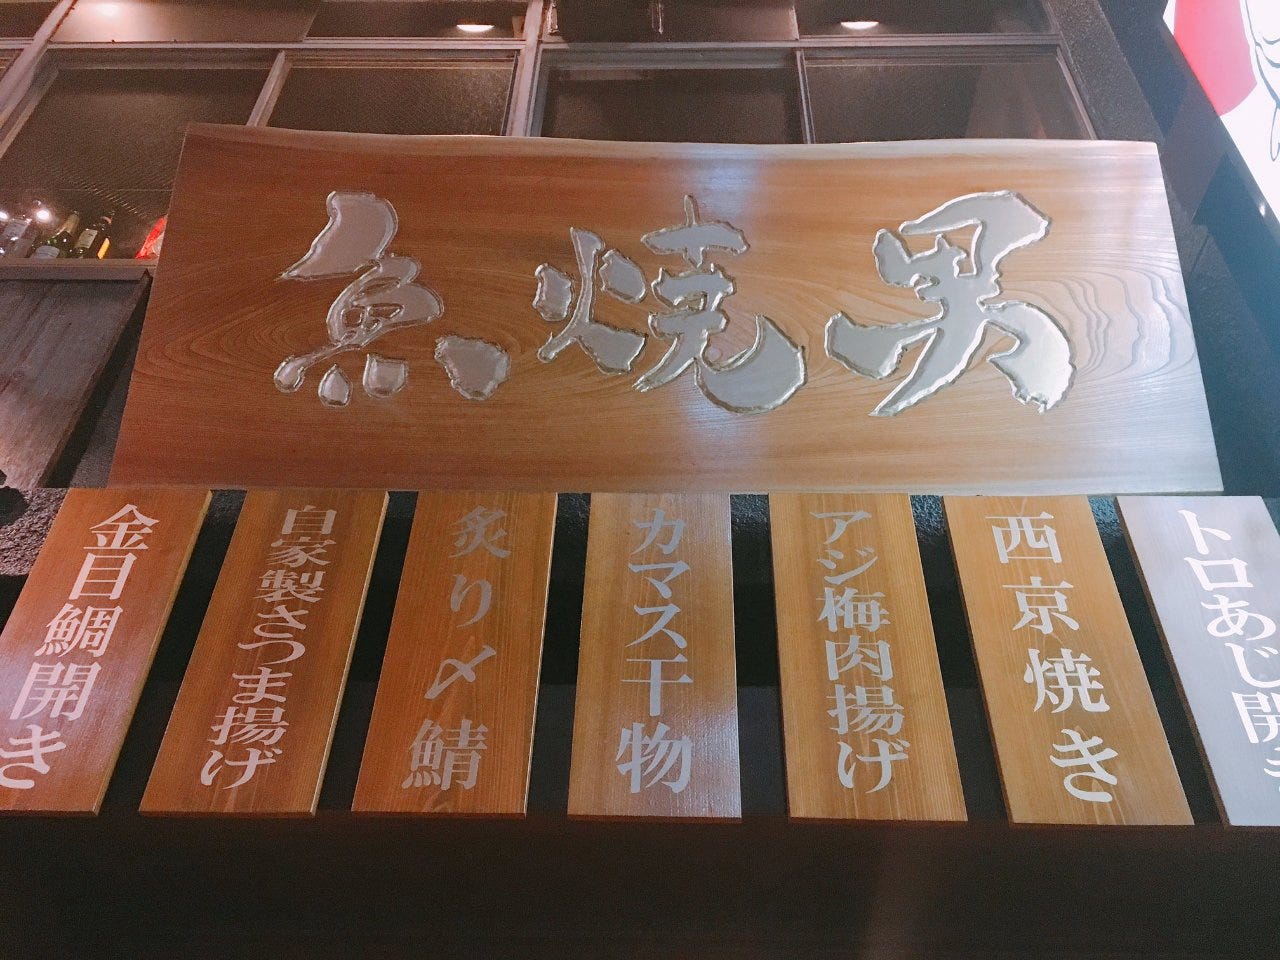 魚焼男
金目鯛開き
自家製さつま揚げ
炙り〆鯖
カマス干物
アジ梅肉揚げ
西京焼き
トロあじ開き